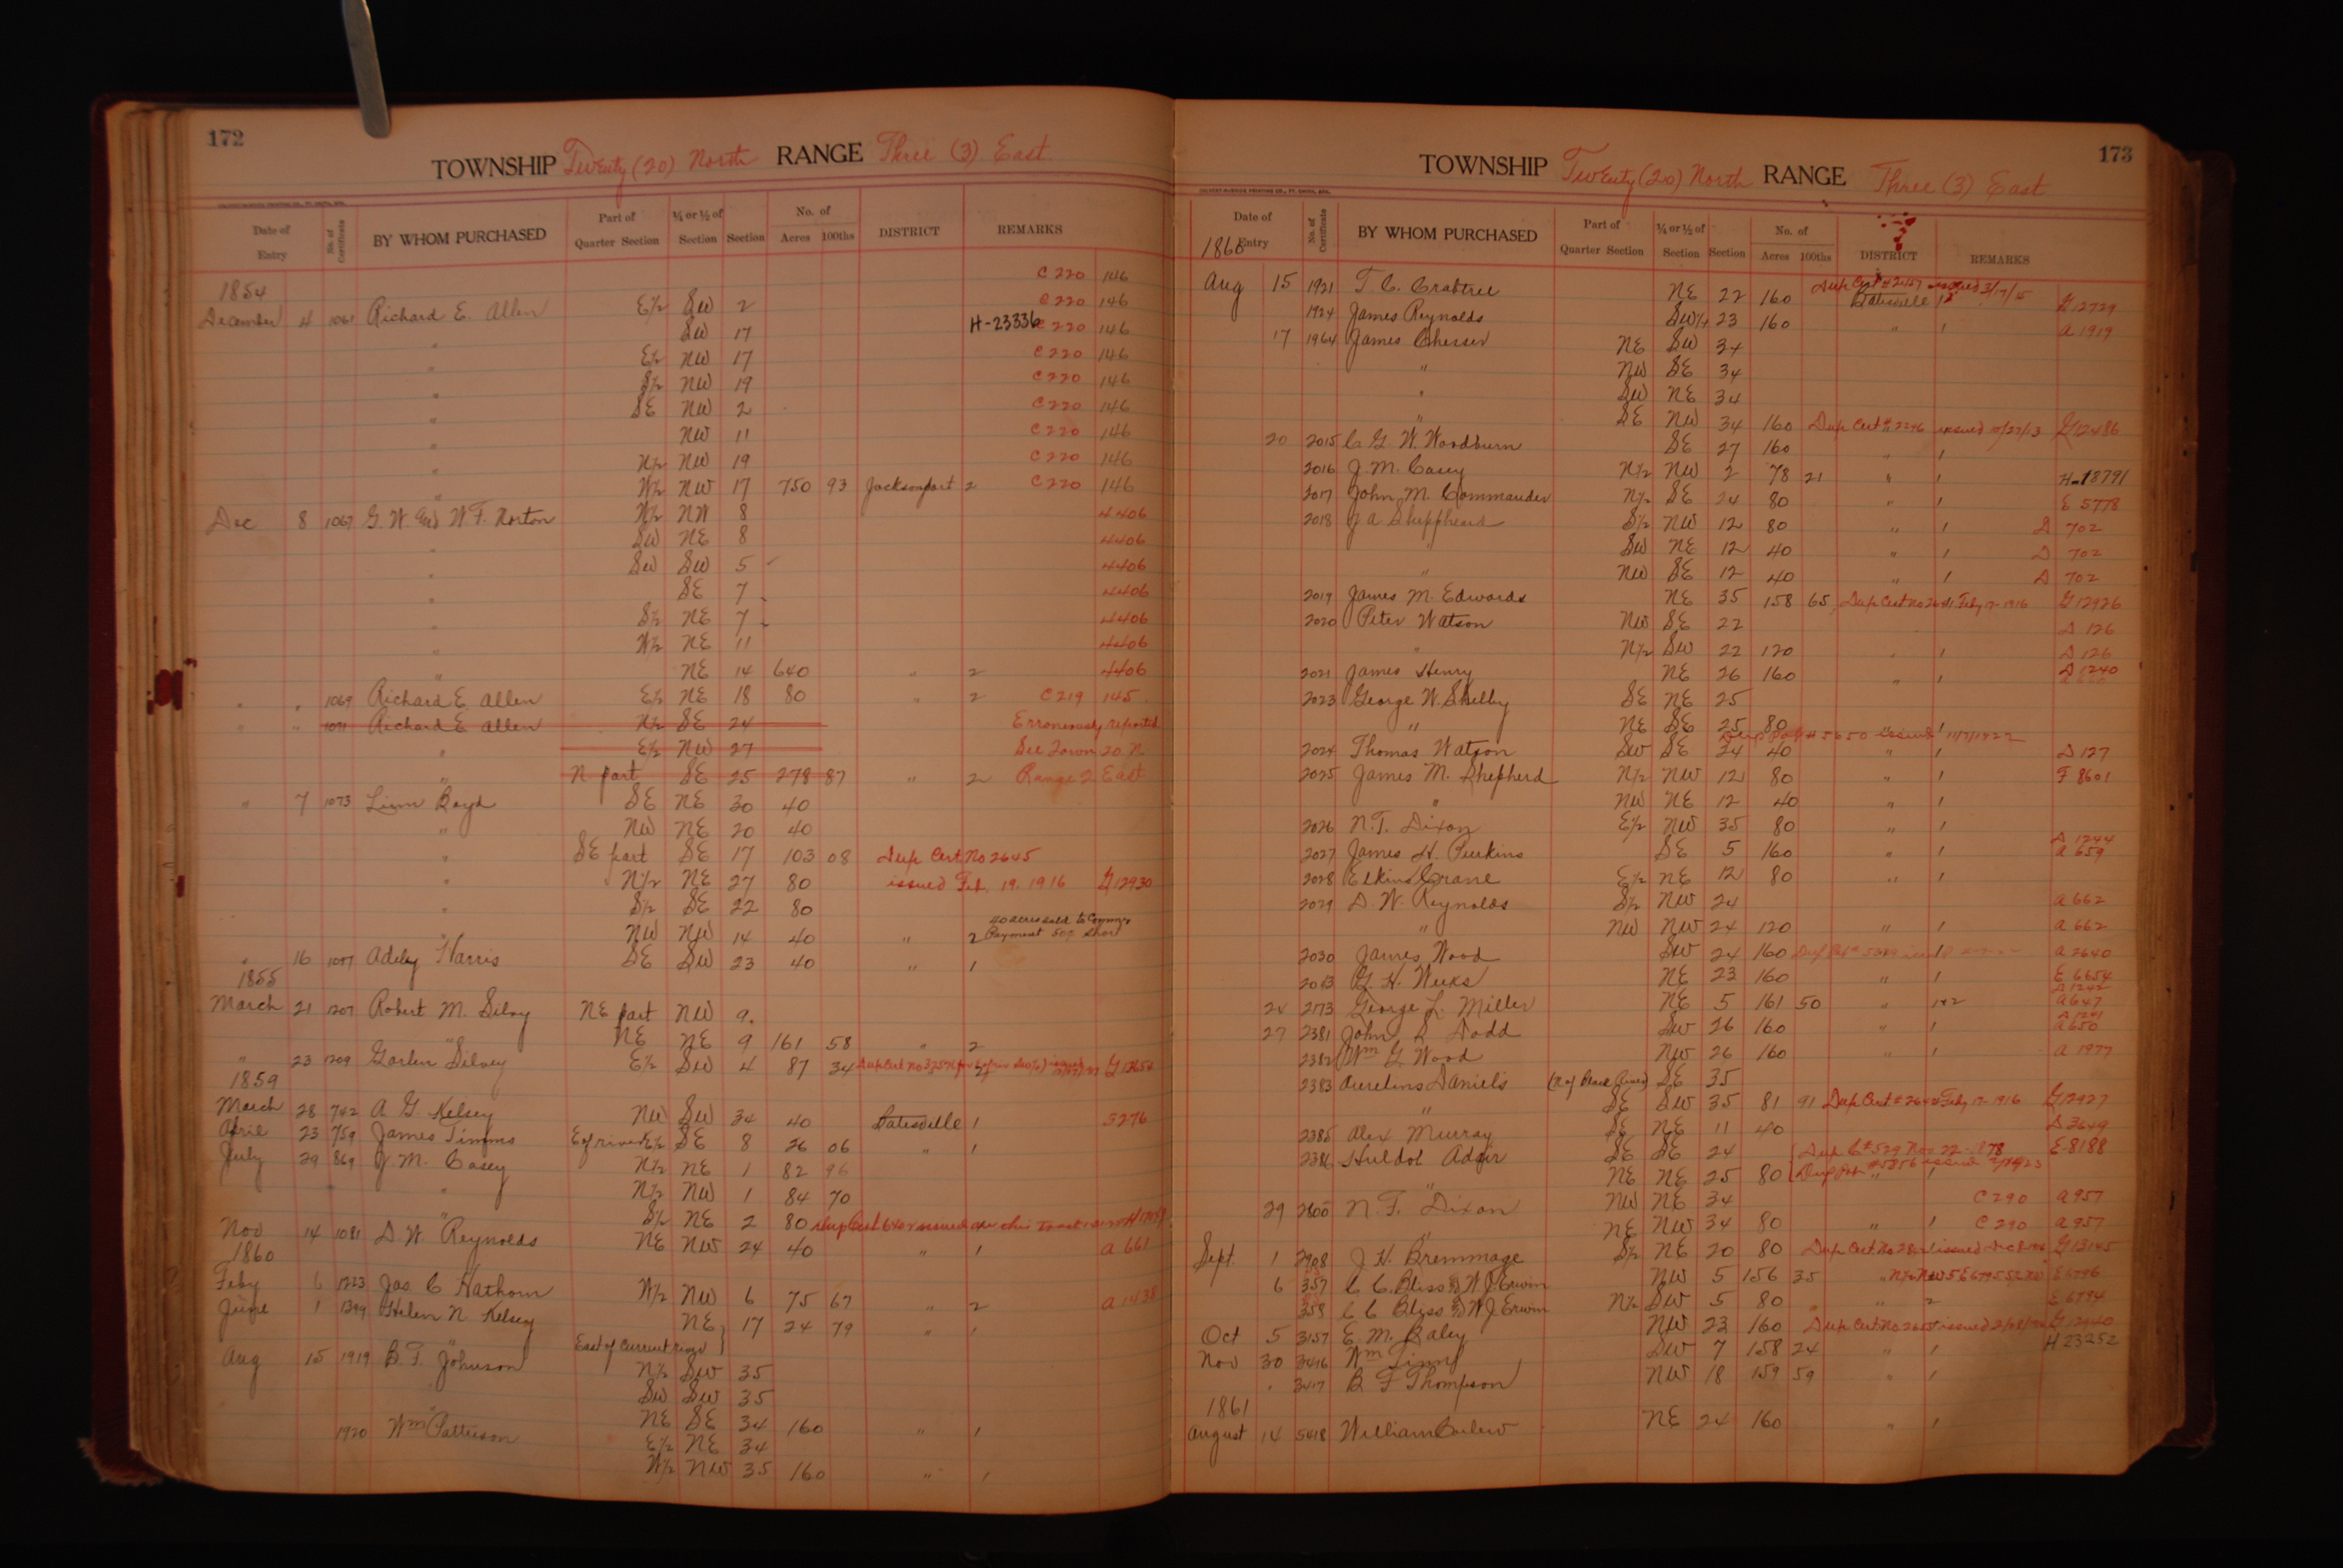 172
TOWNSHIP Twenty (20) North RANGE Three (3) East
Date of Entry No. of Certificate BY WHOM PURCHASED Part of Quarter Section ¼ or ½ of Section Section No. of Acres 100ths DISTRICT REMARKS
C 220 146
1854
December 4 1061 Richard E. Allen E½ SW 2 C 220 146
" SW 17 H-23336 C 220 146
" E½ NW 17 C 220 146
" S½ NW 19 C 220 146
" SE NW 2 C 220 146
" NW 11 C 220 146
" N½ NW 19 C 220 146
" W½ NW 17 750 93 Jacksonport 2 C 220 146
Dec 8 1067 G. W. and W. F. Norton W½ NW 8 4406
" SW NE 8 4406
" SW SW 5 4406
" SE 7 4406
" S½ NE 7 4406
" W½ NE 11 4406
" NE 14 640 " 2 4406
" " 1069 Richard E. Allen E½ NE 18 80 " 2 C 219 145
" " 1071 Richard E. Allen N½ SE 24 Erroneously reported
" E½ NW 27 See Town 20 N
" N part SE 25 278 87 " 2 Range 2 East
" 7 1073 Linn Boyd SE NE 30 40
" NW NE 20 40
" SE part SE 17 103 08 Dup Cert No 2645
" N½ NE 27 80 issued Feb. 19. 1916 G 12930
" S½ SE 22 80
40 acres sold to
" NW NW 14 40 " 2 Payment short
" 16 Adley Harris SE SW 23 40 " 1
1855
March 21 1207 Robert M. Silvy NE part NW 9
" NE NE 9 161 58 " 2
" 23 1209 Garlen Silvey E½ SW 4 87 34 Dup Cert No
1859
March 28 742 A. G. Kelsey NW SW 34 40 Batesville 1 5276
April 23 759 James Timms E of river E½ SE 8 26 06 " 1
July 29 869 J. M. Casey N½ NE 1 82 96
" N½ NW 1 84 70
" S½ NE 2 80 Dup Cert
Nov 14 1081 D. W. Reynolds NE NW 24 40 " 1 A 661
1860
Feby 6 1223 Jas. C Hathorn W½ NW 6 75 67 " 2 A 1438
June 1 1399 Helen N. Kelsey NE 17 24 79 " 1
" East of Current river
Aug 15 1919 B. F. Johnson N½ SW 35
SW SW 35
" NE SE 34 160 " 1
1920 Wm Patterson E½ NE 34
W½ NW 35 160 " 1
173
TOWNSHIP Twenty (20) North RANGE Three (3) East
Date of Entry No. of Certificate BY WHOM PURCHASED Part of Quarter Section ¼ or ½ of Section Section No. of Acres 100ths DISTRICT REMARKS
1860
Dup Cert # issued 3/17/15
Aug 15 1921 T. C. Crabtree NE 22 160 Batesville 1 G 12729
1924 James Reynolds SW¼ 23 160 " 1 A 1919
17 1964 James Chesser NE SW 34
" NW SE 34
" SW NE 34
" SE NW 34 160 Dup Cert # 2276 issued 10/27/13 G 12486
20 2015 C. G. W. Woodburn SE 27 160 " 1
2016 J. M. Casey N½ NW 2 78 21 " 1 H-18791
2017 John M. Commander N½ SE 24 80 " 1 E 5778
2018 J. A. Sheppheard S½ NW 12 80 " 1 D 702
" SW NE 12 40 " 1 D 702
" NW SE 12 40 " 1 D 702
2019 James M. Edwards NE 35 158 65 Dup Cert No 2641 Feby 17-1916 G 12926
2020 Peter Watson NW SE 22 D 126
" N½ SW 22 120 " 1 D 126
2021 James Henry NE 26 160 " 1 D 1240
2023 George W. Shelby SE NE 25
" NE SE 25 80 " 1
Dup Pat # 5650 issued 11/7/1922
2024 Thomas Watson SW SE 24 40 " 1 D 127
2025 James M. Shepherd N½ NW 12 80 " 1 F 8601
" NW NE 12 40 " 1
2026 N. T. Dixon E½ NW 35 80 " 1
D 1244
2027 James H. Perkins SE 5 160 " 1 A 659
2028 Elkins Crane E½ NE 12 80 " 1
2029 D. W. Reynolds S½ NW 24 A 662
" NW NW 24 120 " 1 A 662
2030 James Wood SW 24 160 1 A 2640
G. H. Weeks NE 23 160 " 1 E 6654
D 1242
24 2173 George L. Miller NE 5 161 50 " 1+2 A 647
D 1241
27 2381 John R Dodd SW 26 160 " 1 A 650
2382 Wm G. Wood NW 26 160 " 1 A 1977
2383 Aurelins Daniels (N of Black River) SE 35
" SE SW 35 81 91 Dup Cert # Feby 17-1916 G 12927
2385 Alex Murray SE NE 11 40 D 3649
2386 Huldol Adair SE SE 24 Dup C # 529 Nov 22-1878 E-8188
" NE NE 25 80 Dup Pat # 5856 issued
29 2800 N. T. Dixon NW NE 34 C 290 A 957
" NE NW 34 80 " 1 C 290 A 957
Sept. 1 2908 J. H. Bremmage S½ NE 20 80 Dup Cert No issued G 13145
6 357 C. C. Bliss and W J. Erwin NW 5 156 35 E 6796
358 C C Bliss and W J. Erwin N½ SW 5 80 " " 2 E 6794
Oct 5 3157 E. M. Baley NW 23 160 Dup Cert No. issued G 12940
Nov 30 3416 Wm Tinny SW 7 158 24 " 1 H 23252
" 3417 B F Thompson NW 18 159 59 " 1
1861
August 14 5418 William Carlew NE 24 160 " 1